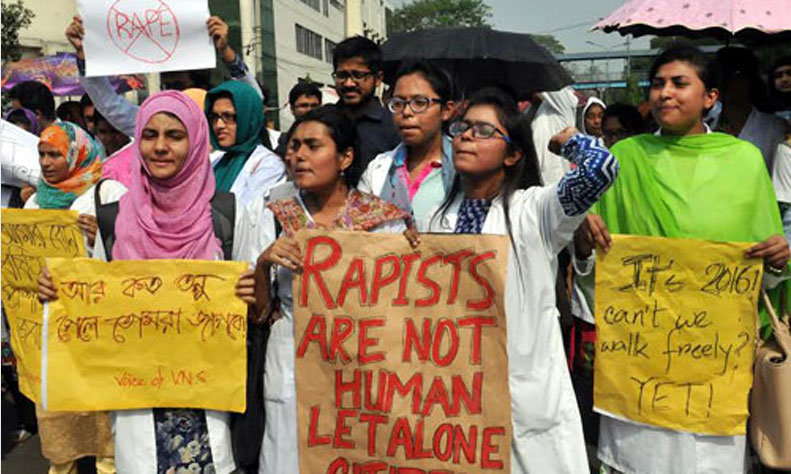 RAPE
আর কত তনু
গেলে তোমরা জাগবে
Voice of VNS
RAPISTS
ARE NOT
HUMAN
LETALONE
It's 2016!
can't we
walk freely?
YET!